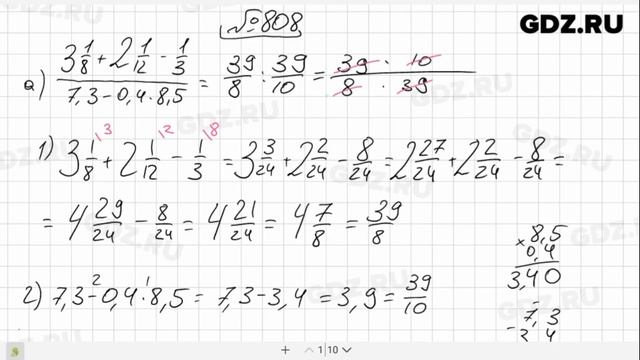 №808
GDZ.RU
а) (3 1/8 + 2 1/12 - 1/3)/(7,3-0,4·8,5) = 39/8 : 39/10 = (39 · 10)/(8 · 39)
3 12 18
1) 3 1/8 + 2 1/12 - 1/3 = 3 3/24 + 2 2/24 - 8/24 = 2 27/24 + 2 2/24 - 8/24 =
= 4 29/24 - 8/24 = 4 21/24 = 4 7/8 = 39/8
8,5
× 0,4
3,40
2 1
2) 7,3-0,4·8,5 = 7,3-3,4 = 3,9 = 39/10
7,3
- 3 4
1 10